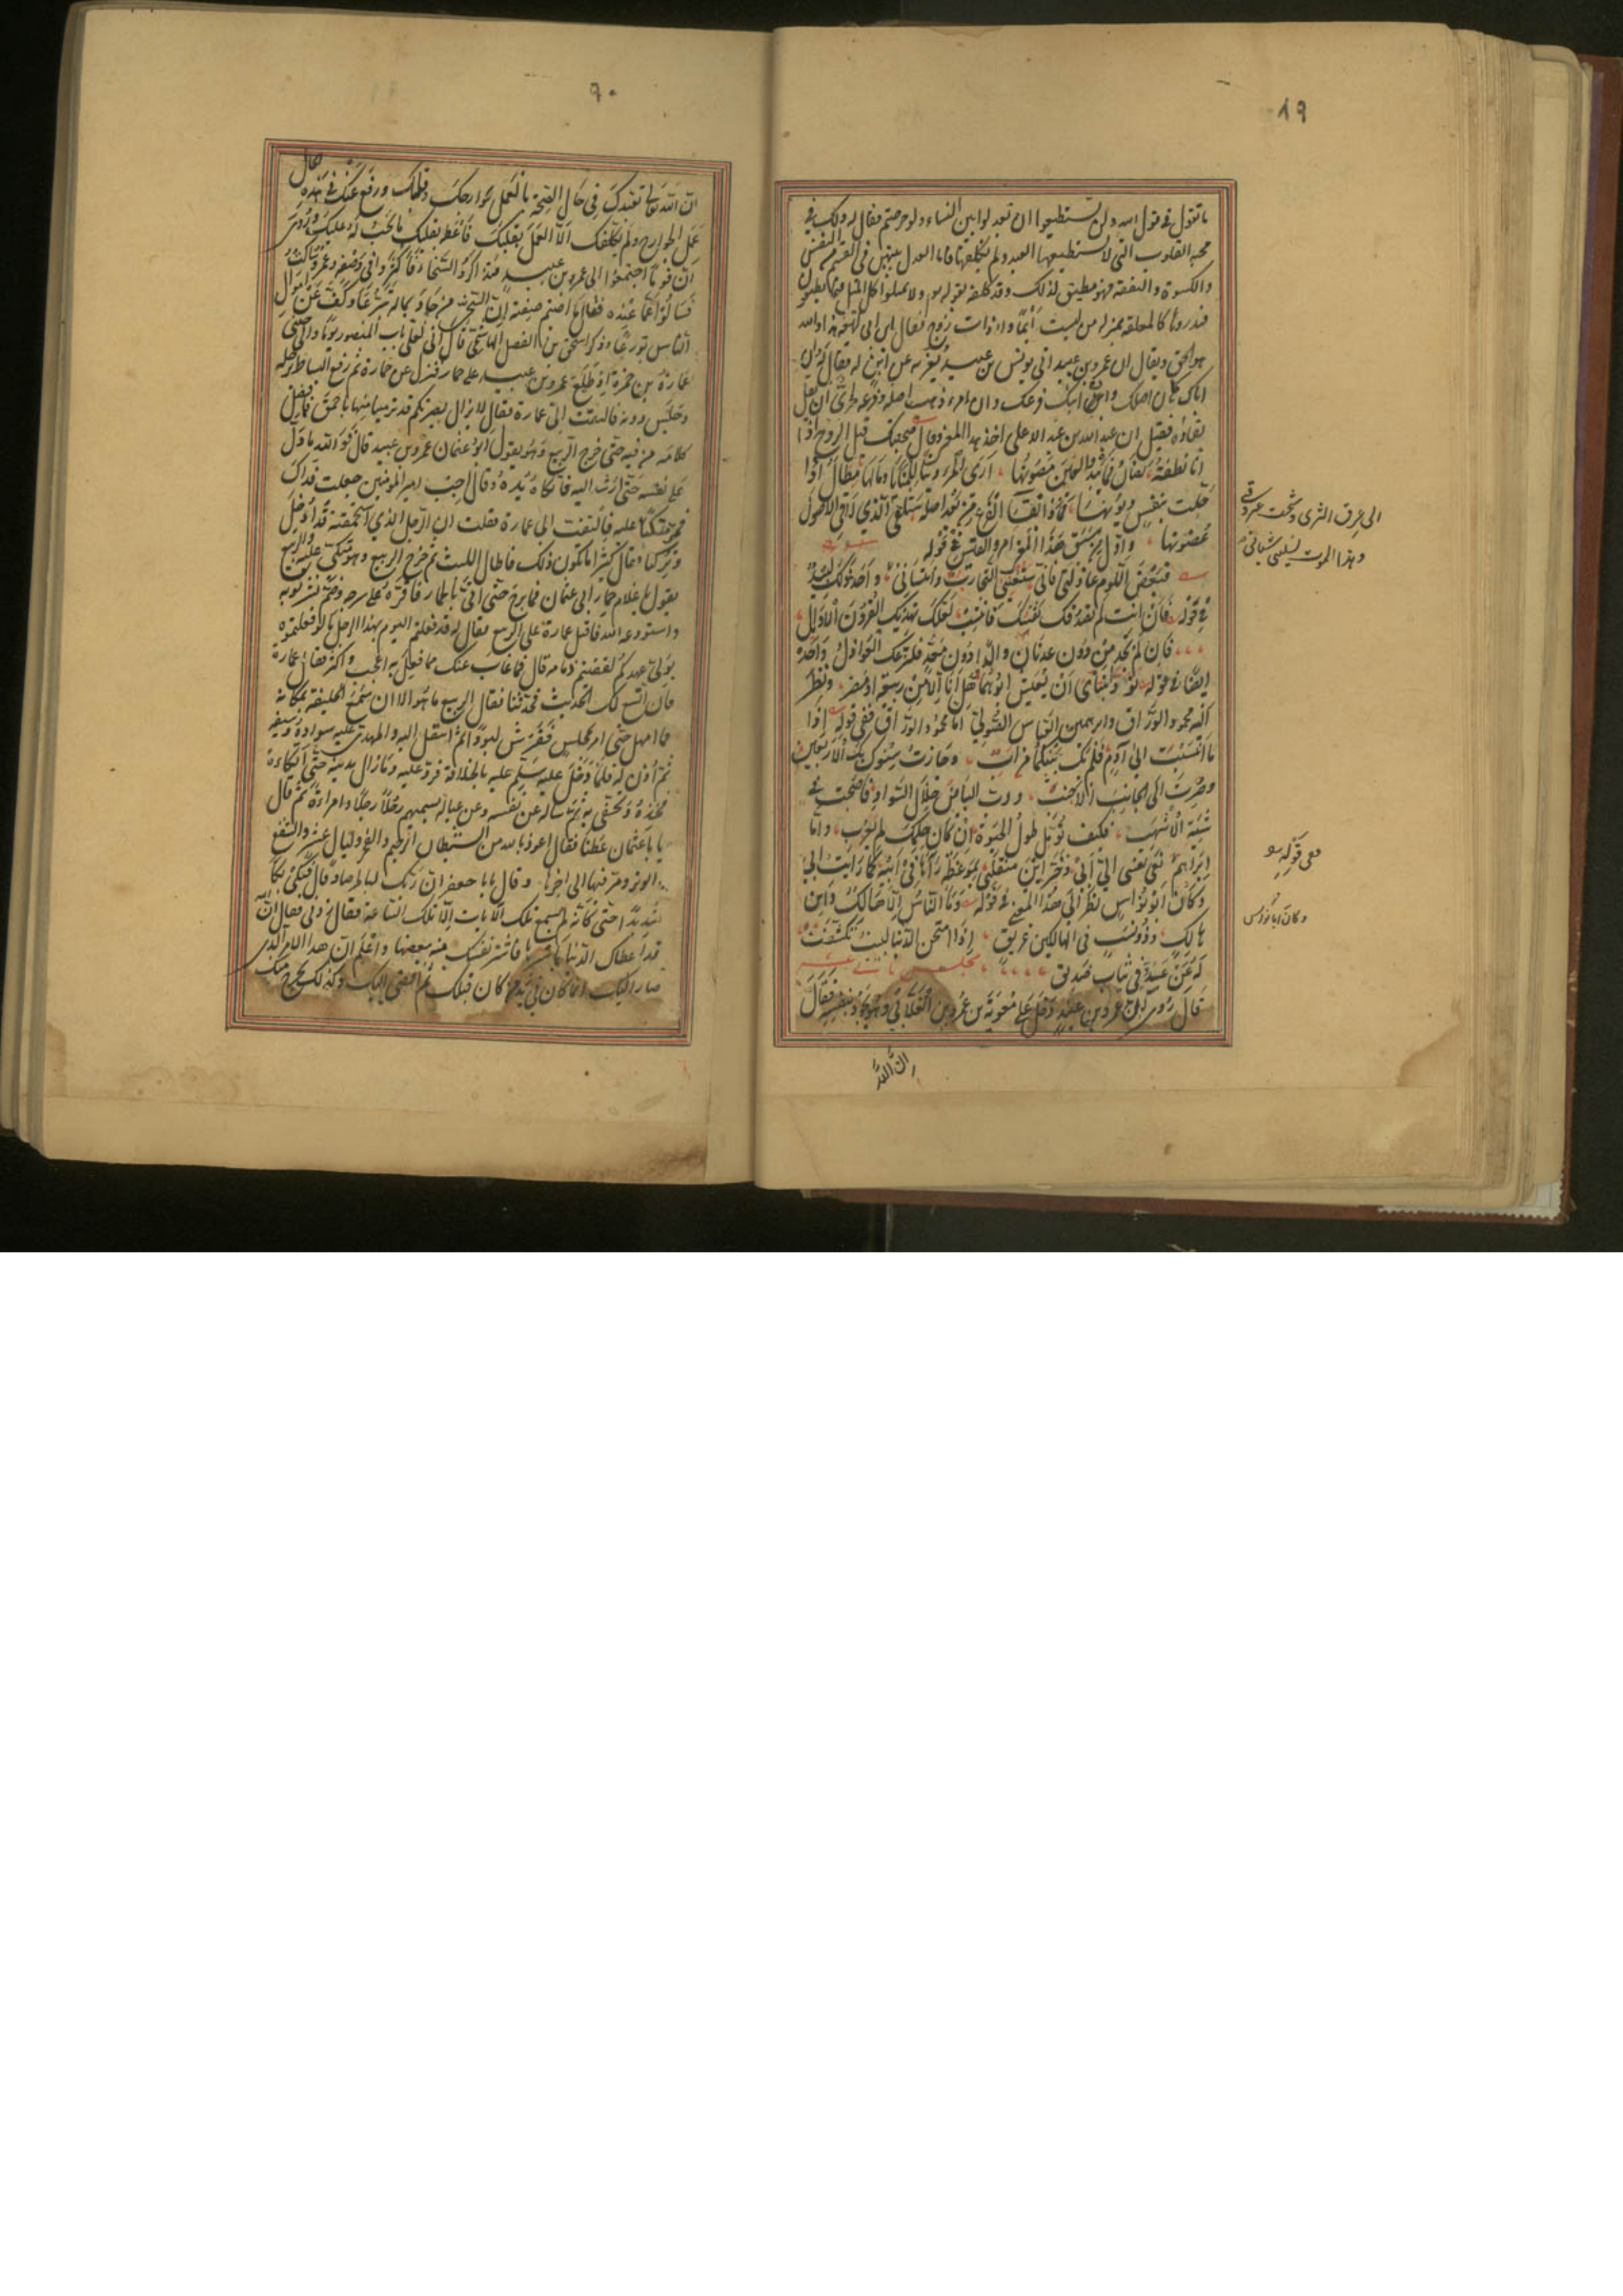 ٨٩
ما تقول في قول الله ولن تستطيعوا ان تعدلوا بين النساء ولو حرصتم فقال له ذلك في
محبة القلوب التي لا يستطيعها العبد ولم يكلفها فاما العدل بينهن في القسم من النفس
والكسوة والنفقة فهو مطيق لذلك وقد كلفه بقوله ولا تميلوا كل الميل فيما تطيقون
فتذروها كالمعلقة بمنزلة من ليست أيما ولا ذات زوج فقال ابن ابي هذا والله
هو الحق ويقال ان عمرو بن عبيد اتى يونس بن عبيد يعزيه عن ابن له فقال له ان
اباك كان اصلك وان ابنك فرعك وان امرء ذهب اصله وفرعه لحرى ان يقل
بقاؤه فقيل ان عبد الله بن عبد الاعلى اخذ هذا المعنى فقال صحبتك قبل الروح اذ
انا نطفة تصان فما يبدو لعين مصونها ارى المرء دينا للمنايا وما لها مطال اذا
حلت بنفس ديونها فماذا بقاء الفرع من بعد اصله ستلقى الذي لاقى الاصول
غصونها واول من سبق هذا المعنى امرو القيس في قوله
فبعض اللوم عاذلتي فاني ستغنيني التجارب وانتسابي واخذ ذلك لبيد
في قوله فان انت لم تصدقك نفسك فانتسب لعلك تهديك القرون الاوائل
فان لم تجد من دون عدنان والدا ودون معد فلتزعك العواذل واخذه
ايضا في قوله تمنى ابنتاي ان يعيش ابوهما وهل انا الا من ربيعة او مضر ونظر
اليه محمود الوراق وابراهيم بن العباس الصولي اما محمود الوراق ففي قوله اذا
ما انتسبت الى آدم فلم يك بينكما من اب وجازت سنوك بك الاربعين
وصرت الى الجانب الاجنب ودب البياض خلال السواد فاصبحت في
شيبة الاشهب فكيف تؤمل طول الحيوة اذا كان حلمك لم يعزب واما
ابراهيم نعى نفسي الي ابي وخبر اين منقلبي بموعظة رآها في ابيه كما رايت ابي
وكان ابو نواس نظر الى هذا المعنى في قوله وما الناس الا هالك وابن
هالك وذو نسب في الهالكين عريق اذا امتحن الدنيا لبيب تكشفت
له عن عدو في ثياب صديق مجلس ثاني عشر
قال روى ان عمرو بن عبيد دخل على معوية بن عمرو بن الغلابي وهو يجود بنفسه فقال
ان الله
الى عرق الثرى وشجت عروقي
وهذا الموت يسلبني شبابي
ففي قوله
وكان ابا نواس
٩٠
ان الله تعالى تعبدك في حال الصحة بالعمل بجوارحك وقلبك ورفع عنك في هذه الحال
عمل الجوارح ولم يكلفك الا العمل بقلبك فاعطه بقلبك ما يجب له عليك وروى
ان قوما اجتمعوا الى عمرو بن عبيد فتذاكروا السخاء فاكثروا في وصفه وعمرو ساكت
فسالوه عما عنده فقال ما اصبتم صفته ان السخي من جاد بماله تبرعا وكف عن اموال
الناس تورعا وذكر اسحق بن الفضل الهاشمي قال اني لعلى باب المنصور يوما والى جنبي
عمارة بن حمزة اذ طلع عمرو بن عبيد على حمار فنزل عن حماره ثم دفع البساط برجله
وجلس دونه فالتفت الي عمارة فقال لا يزال بصرتكم قد ترمينا منها باحمق فما فصل
كلامه من فيه حتى خرج الربيع وهو يقول ابو عثمان عمرو بن عبيد قال فوالله ما دل
على نفسه حتى ارشد اليه فاتكاه يده وقال اجب امير المؤمنين جعلت فداك
فمر متكئا عليه فالتفت الى عمارة فقلت ان الرجل الذي استحمقته قد ادخل
وتركنا فقال كثيرا ما يكون ذلك فاطال اللبث ثم خرج الربيع وهو متكئ عليه والربيع
يقول يا غلام حمار ابي عثمان فما برح حتى اتى بالحمار فاقره على سرجه وضم نشر ثوبه
واستودعه الله فاقبل عمارة على الربيع فقال له لقد فعلتم اليوم بهذا الرجل ما لو فعلتموه
بولي عهدكم لقضيتم ذمامه قال فما غاب عنك مما فعل به اعجب واكثر فقال عمارة
فان اتسع لك الحديث فحدثنا فقال الربيع ما هو الا ان سمع الخليفة بمكانه
فما امهل حتى امر بمجلس ففرش لبودا ثم انتقل اليه والمهدي عليه سواده وسيفه
ثم اذن له فلما دخل عليه سلم عليه بالخلافة فرد عليه وما زال يدنيه حتى اتكاه
فخذه وتحفى به ثم ساله عن نفسه وعن عياله يسميهم رجلا رجلا وامراة ثم قال
يا با عثمان عظنا فقال اعوذ بالله من الشيطان الرجيم والفجر وليال عشر والشفع
والوتر ومر فيها الى اخرها وقال يا با جعفر ان ربك لبالمرصاد قال فبكى بكاء
شديدا حتى كانه لم يسمع تلك الايات الا تلك الساعة فقال زدني فقال ان الله
قد اعطاك الدنيا باسرها فاشتر نفسك منه ببعضها واعلم ان هذا الامر الذي
صار اليك انما كان في يد من كان قبلك ثم افضى اليك وكذلك يخرج منك